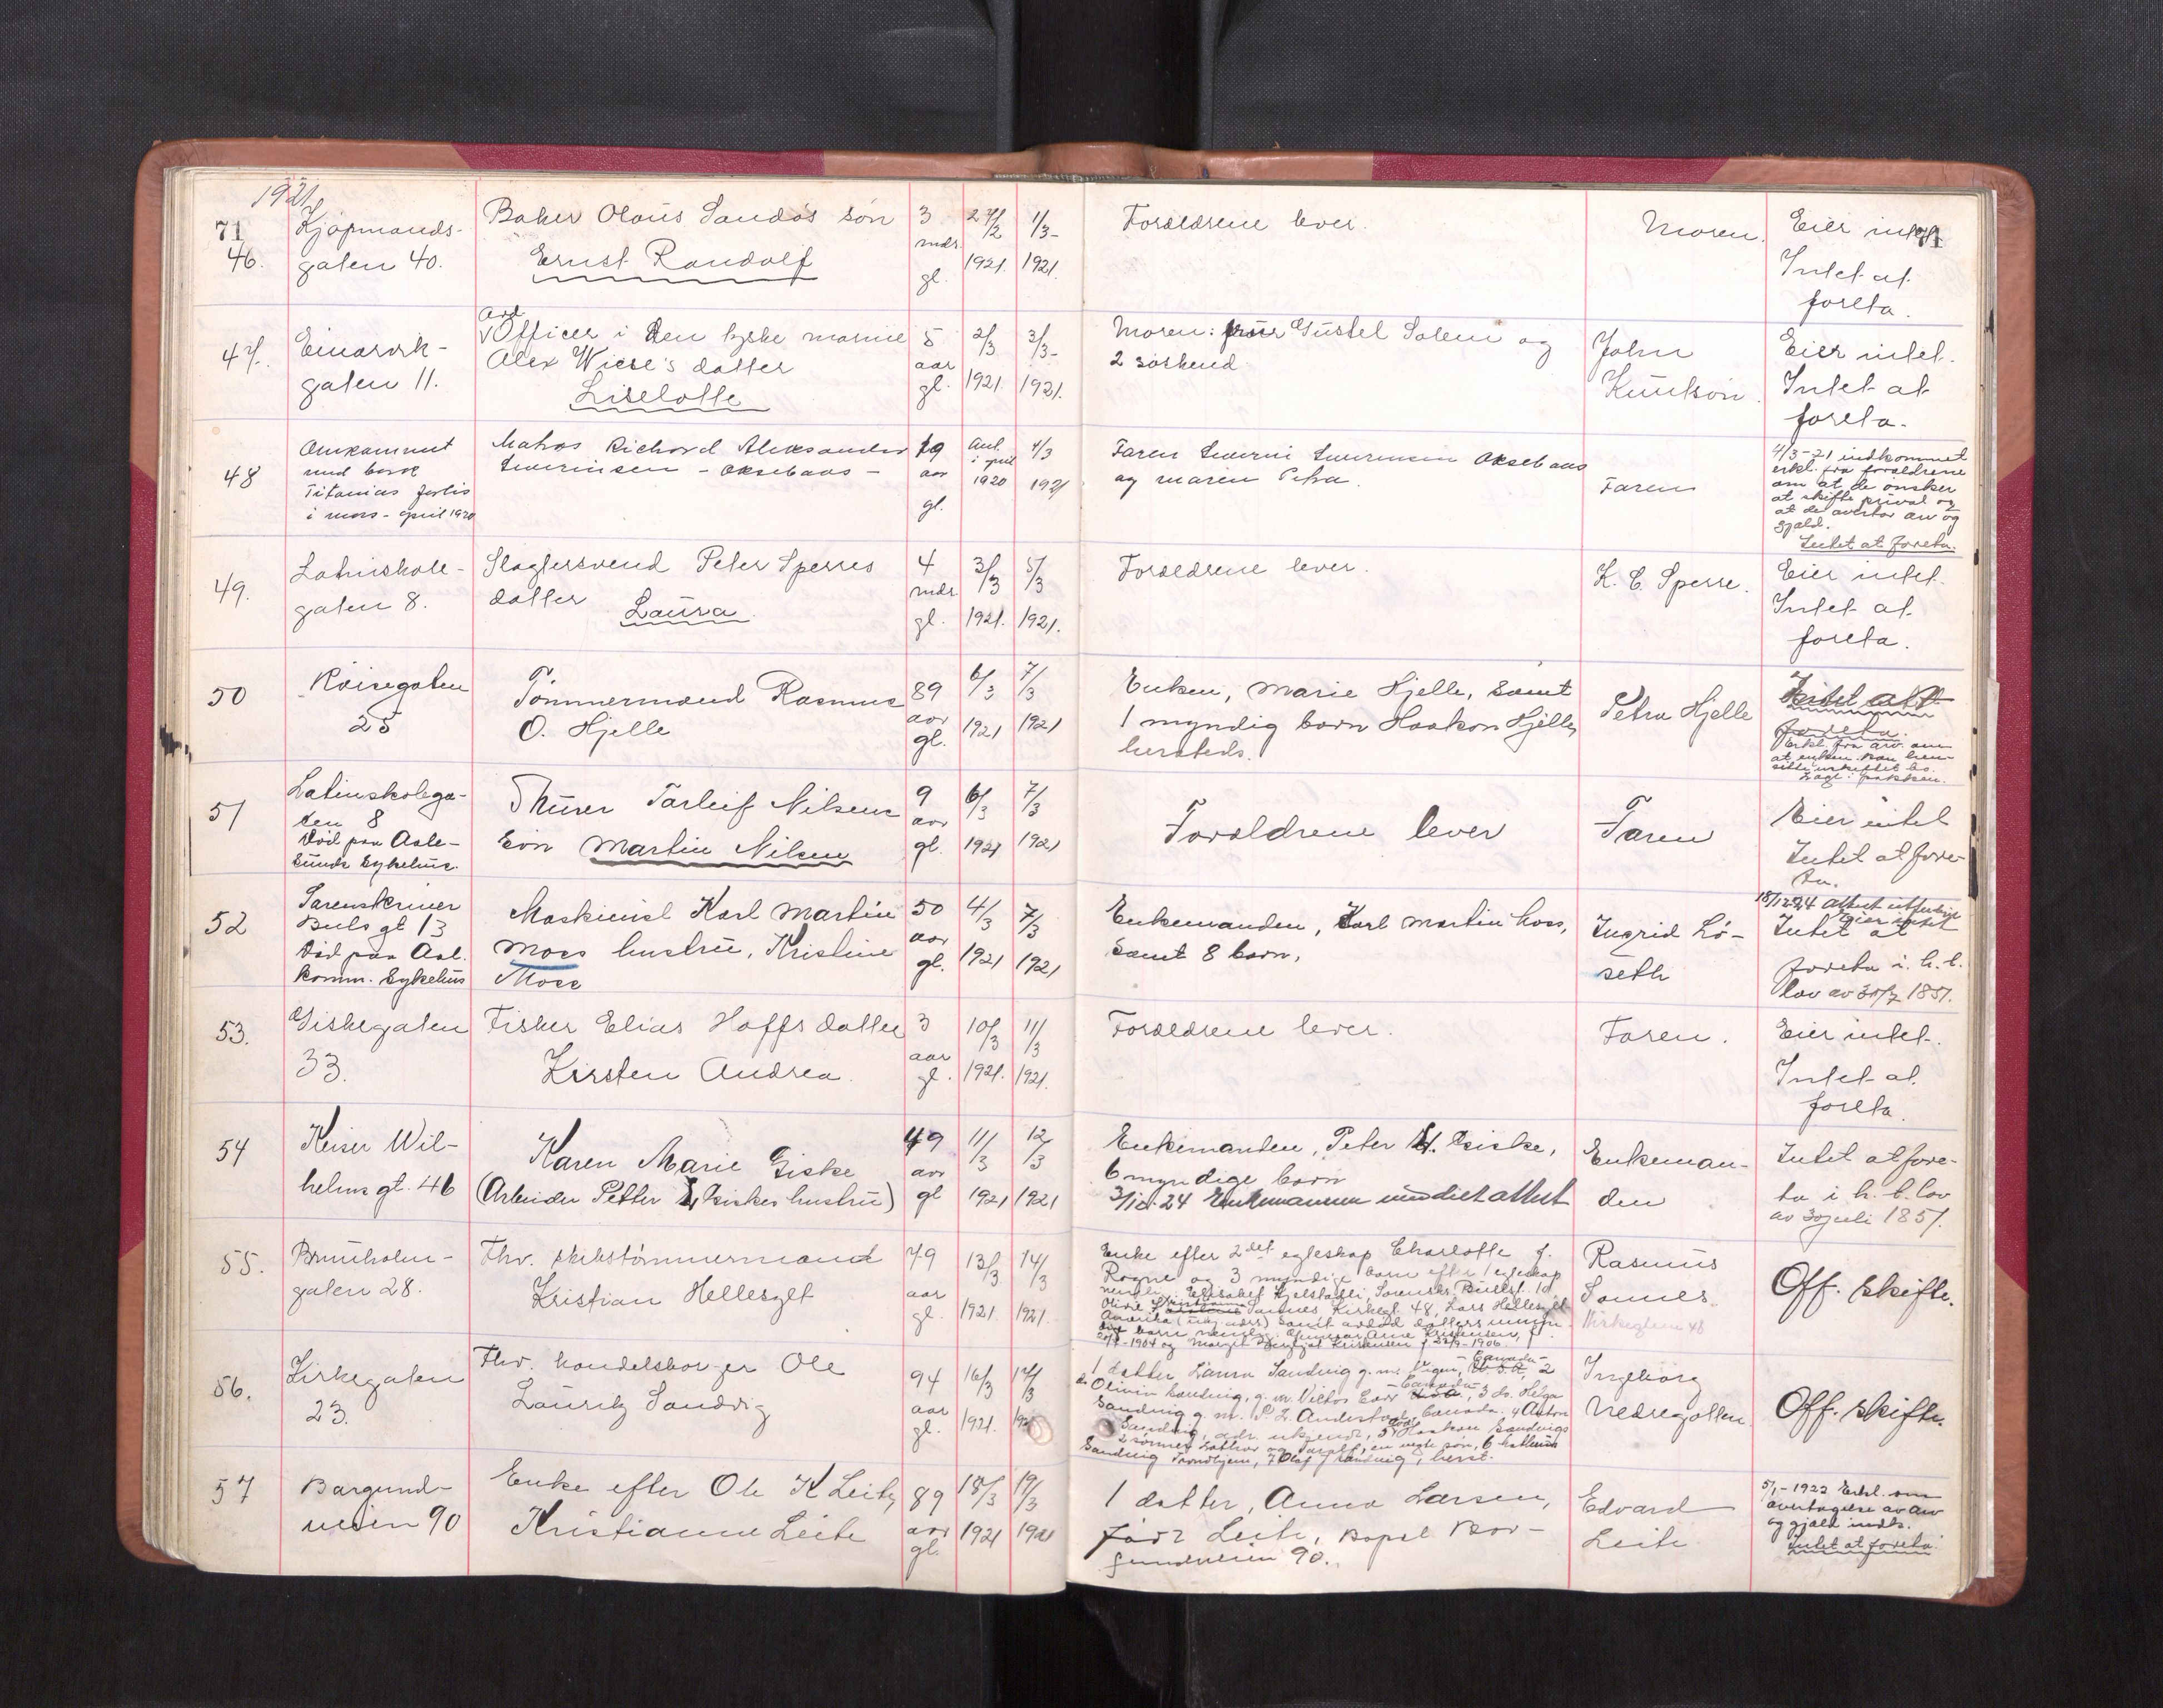 1921
71
46.
Kjøpmands-
gaten 40.
Baker Olaus Sandøs søn
Ernst Randolf
3
mdr.
gl.
27/2
1921.
1/3-
1921.
Forældrene lever.
Moren.
Eier intet.
71
Intet at
foreta.
47.
Einarvik-
gaten 11.
Officer i den tyske marine
Alex Wiese's datter
Liselotte
5
aar
gl.
2/3
1921.
3/3-
1921.
Moren: fruer Gustel Solem og
2 søskend
John
Knutson.
Eier intet.
Intet at
foreta.
48
Omkommet
med bark
Titanias forlis
i mars-april 1920
Matros Richard Aleksander
Severinsen - Oksebaas -
19
aar
gl.
Ant.
i april
1920
4/3
1921
Faren Severin Severinsen Oksebaas
og maren Petra.
Faren
4/3-21 indkommet
erkl. fra forældrene
om at de ønsker
at skifte privat og
at de overtar arv og
gjæld.
Intet at foreta.
49.
Latinskole-
gaten 8.
Slagtersvend Peter Sperres
datter
Laura
4
mdr
gl.
3/3
1921.
5/3
1921.
Forældrene lever.
K. C. Sperre.
Eier intet.
Intet at
foreta.
50
Røisegaten
25
Tømmermand Rasmus
O. Hjelle
89
aar
gl.
6/3
1921
7/3
1921
Enken, Marie Hjelle, samt
1 myndig barn Haakon Hjelle,
hersteds.
Petra Hjelle
Intet at
foreta.
Erkl. fra arv. om
at enken kan hen-
sitte i uskiftet bo.
Lagt i pakken.
51
Latinskolega-
ten 8
Død paa Aale-
sunds sykehus.
Murer Tarleif Nilsens
søn Martin Nilsen
9
aar
gl.
6/3
1921
7/3
1921
Forældrene lever
Faren
Eier intet
Intet at fore-
ta.
52
Sorenskriver
Buls gt 13
Død paa Aal.
komm. sykehus
Maskinist Karl Martin
Moss hustru, Kristine
Moss
50
aar
gl.
4/3
1921
7/3
1921
Enkemanden, Karl Martin Moss,
samt 8 barn,
Ingrid Lø-
seth
18/12 24 attest utferdiget
Eier intet
Intet at
foreta i. h. t.
lov av 30/7 1851.
53.
Giskegaten
33.
Fisker Elias Hoffs datter
Kirsten Andrea.
3
aar
gl.
10/3
1921.
11/3
1921.
Forældrene lever.
Faren.
Eier intet.
Intet at
foreta.
54
Keiser Wil-
helms gt. 46
Karen Marie Giske
(Arbeider Petter L. Giskes hustru)
49
aar
gl
11/3
1921
12/3
1921
Enkemanden, Peter L. Giske,
6 myndige barn
3/10.24 Enkemannen meddelt attest
Enkeman-
den
Intet at fore-
ta i h. t. lov
av 30 juli 1851.
55.
Brunholm-
gaten 28.
Fhv. skibstømmermand
Kristian Hellesylt
79
aar
gl.
13/3
1921.
14/3
1921.
Enke efter 2det egteskap Charlotte f.
Rogne og 3 myndige barn efter 1 egteskap
nemlig: Elisabet Hjelstadli, Sorenskr. Bullsgt. 10
Olivie Sannes Kirkegt. 48, Lars Hellesylt
Amerika (ukj. adrs) samt avdød datters umyn-
dige barn, nemlig: Gunnvor Arne Kristensen, f.
1904 og Margit Kristensen f. 22/9-1906.
Rasmus
Sannes.
Kirkegaten 48
Off. skifte.
56.
Kirkegaten
23.
Fhv. handelsborger Ole
Lauritz Sandvig
94
aar
gl.
16/3
1921.
17/3
1921
1 datter Laura Sandvig g.m. Canada 2
do Olivia Sandvig, g. m. Canada, 3 do. Helga
Sandvig g. m. P. L. Canada. 4 Anton
Sandvig, adr. ukjendt, 5 Haakon Sandvigs
2 sønner en søn, 6
Sandvig Trondhjem, 7 Olaf Sandvig, herst.
Ingeborg
Nedregotten.
Off. skifte.
57
Borgund-
veien 90
Enke efter Ole K Leite,
Kristianne Leite
89
aar
gl.
18/3
1921
19/3
1921
1 datter, Anna Larsen,
født Leite, Bopæl Bor-
gundveien 90.
Edvard
Leite
5/1-1922 Erkl. om
overtagelse av arv
og gjæld indk.
Intet at foreta.